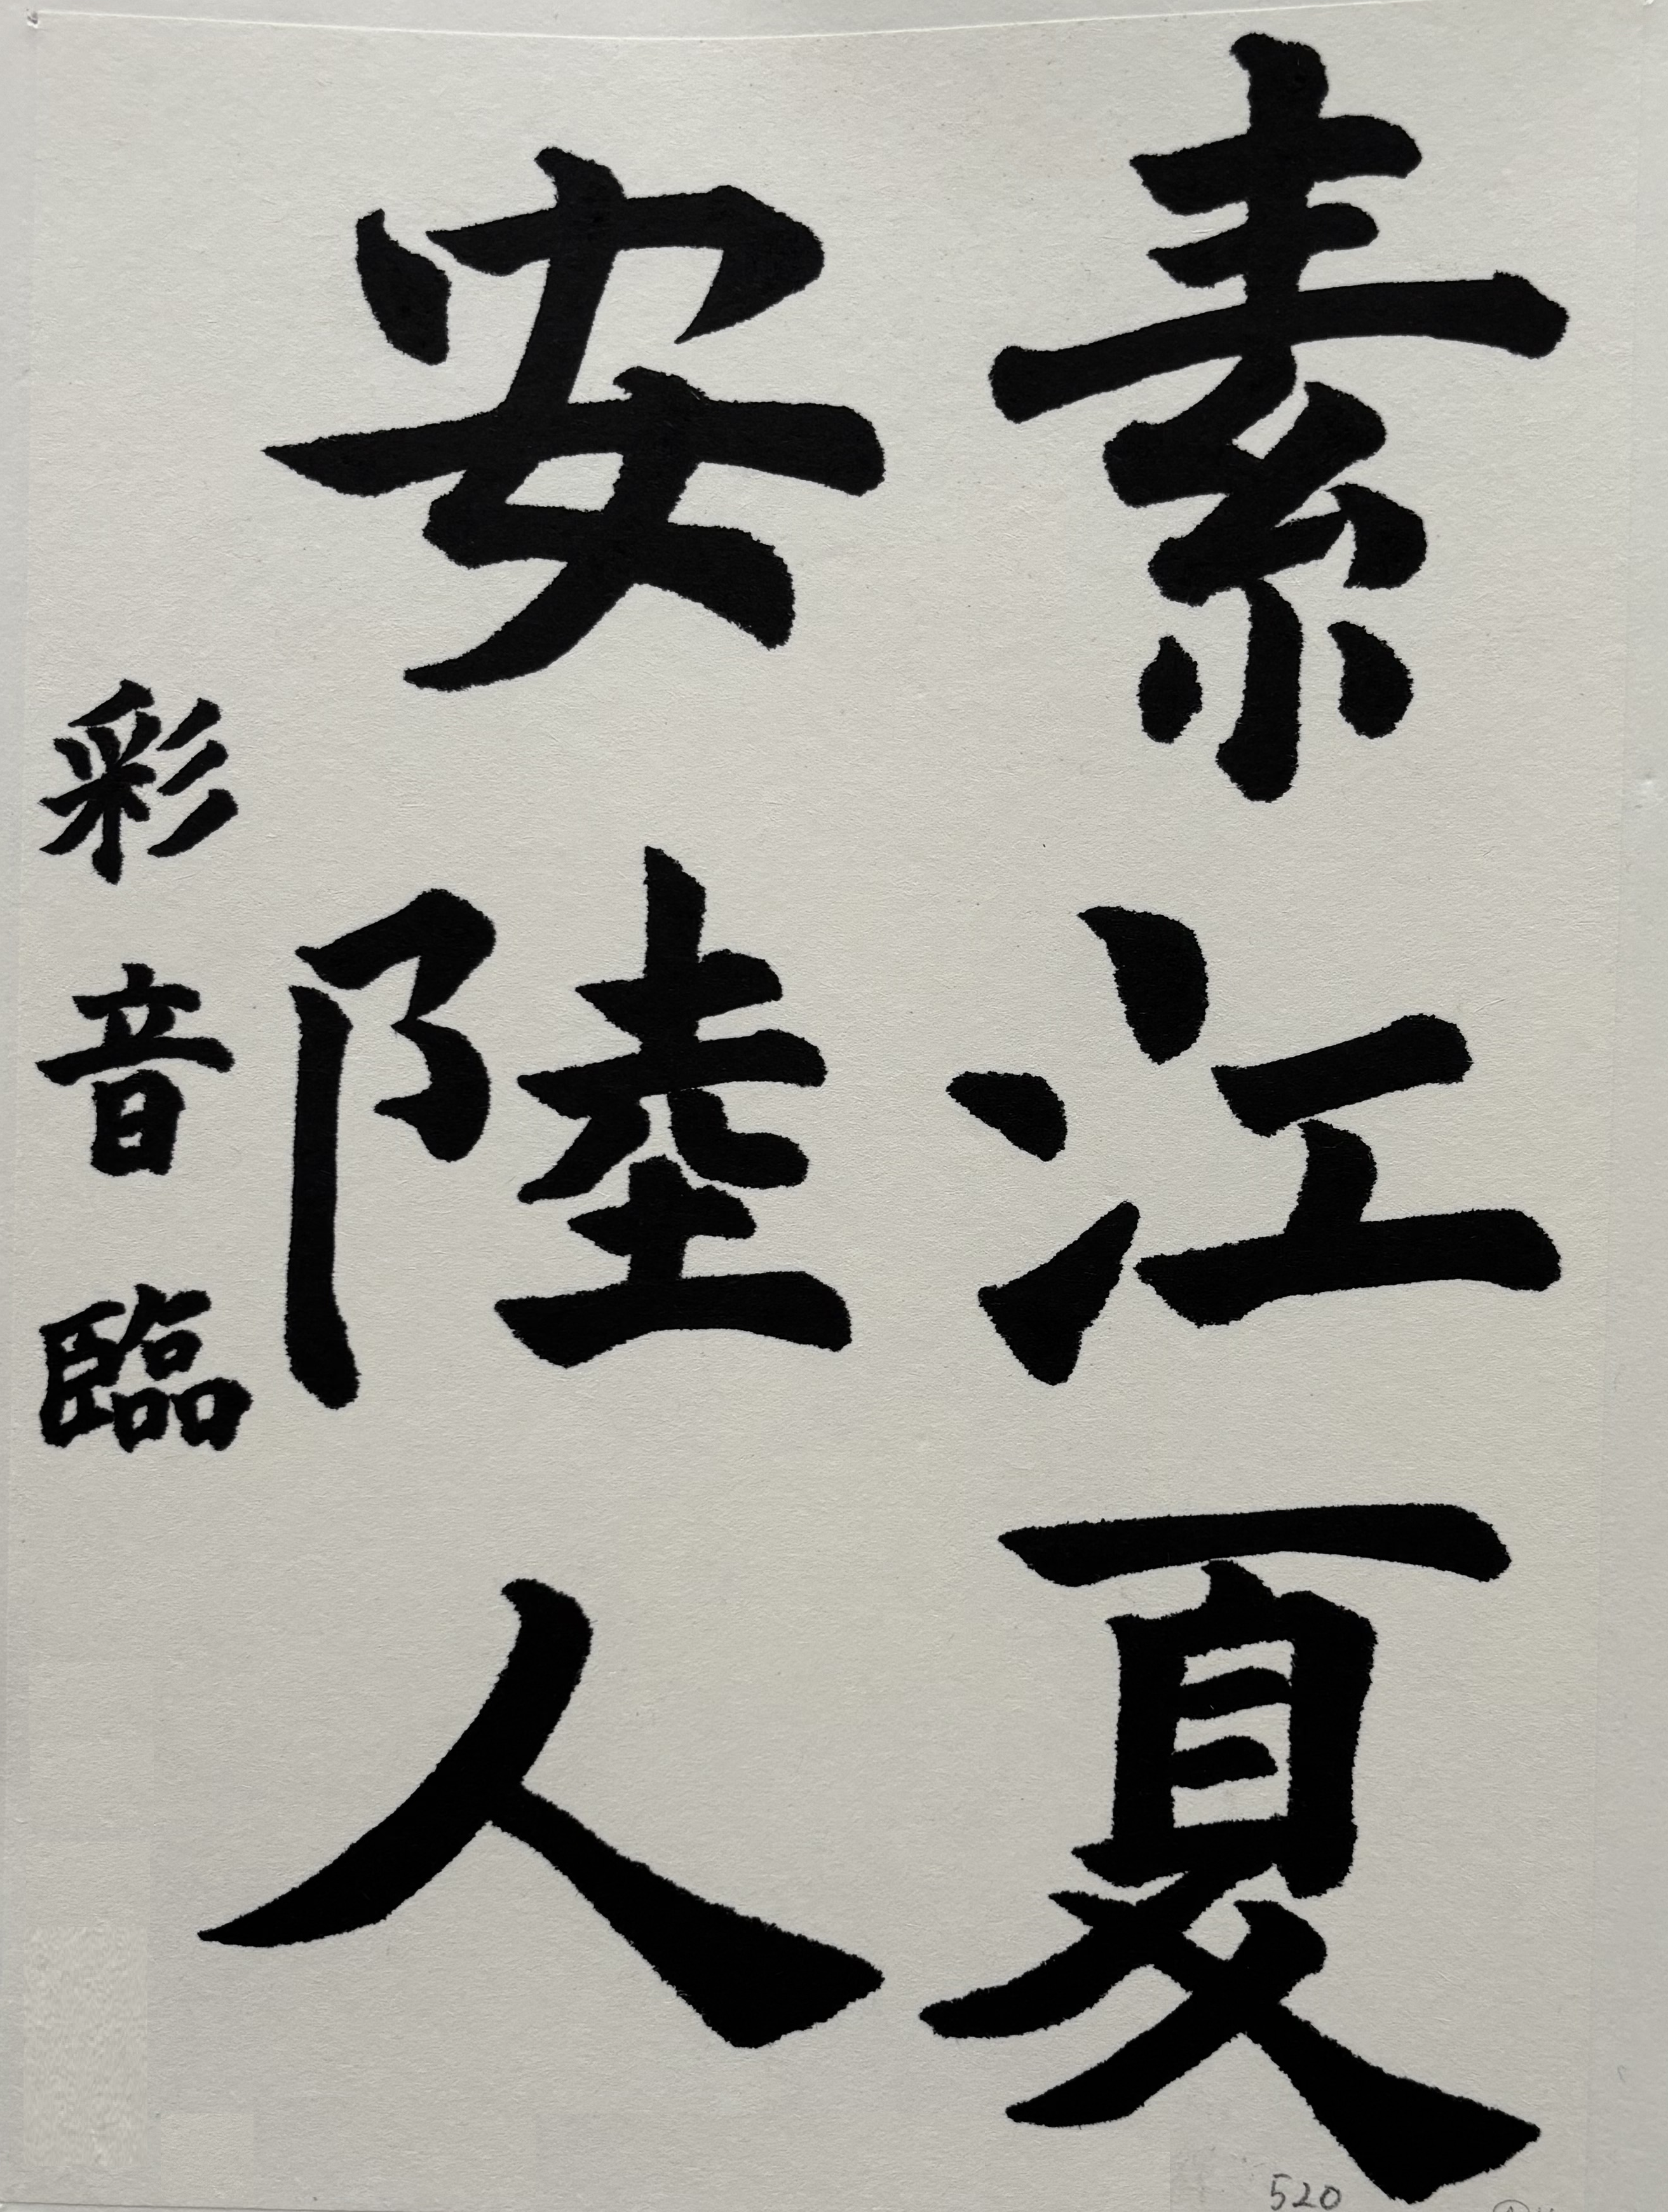 素江夏
安陸人
彩音臨
520